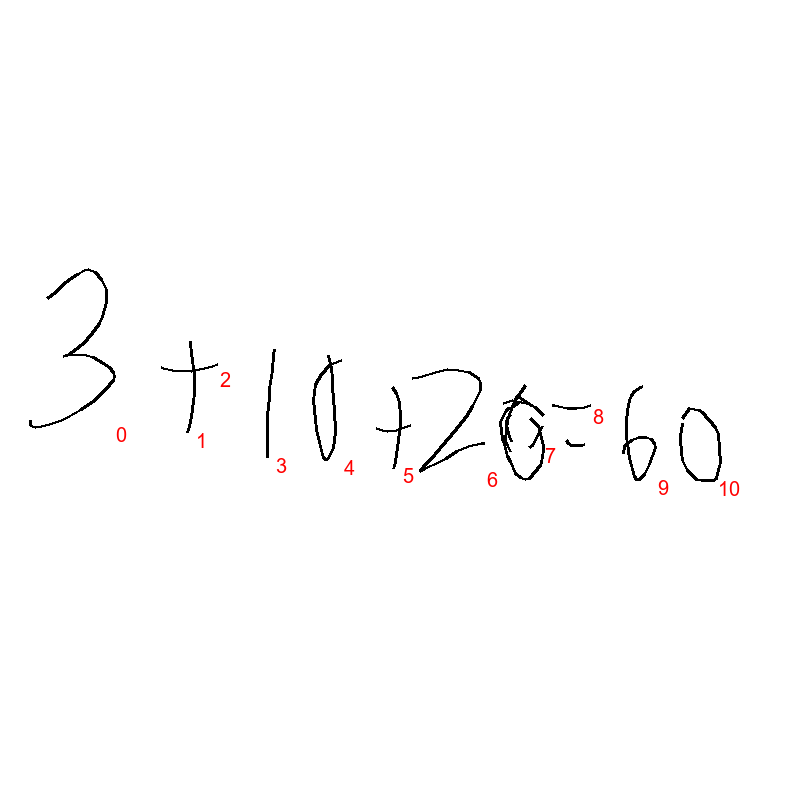 3+10+20=60
0 1 2 3 4 5 6 7 8 9 10